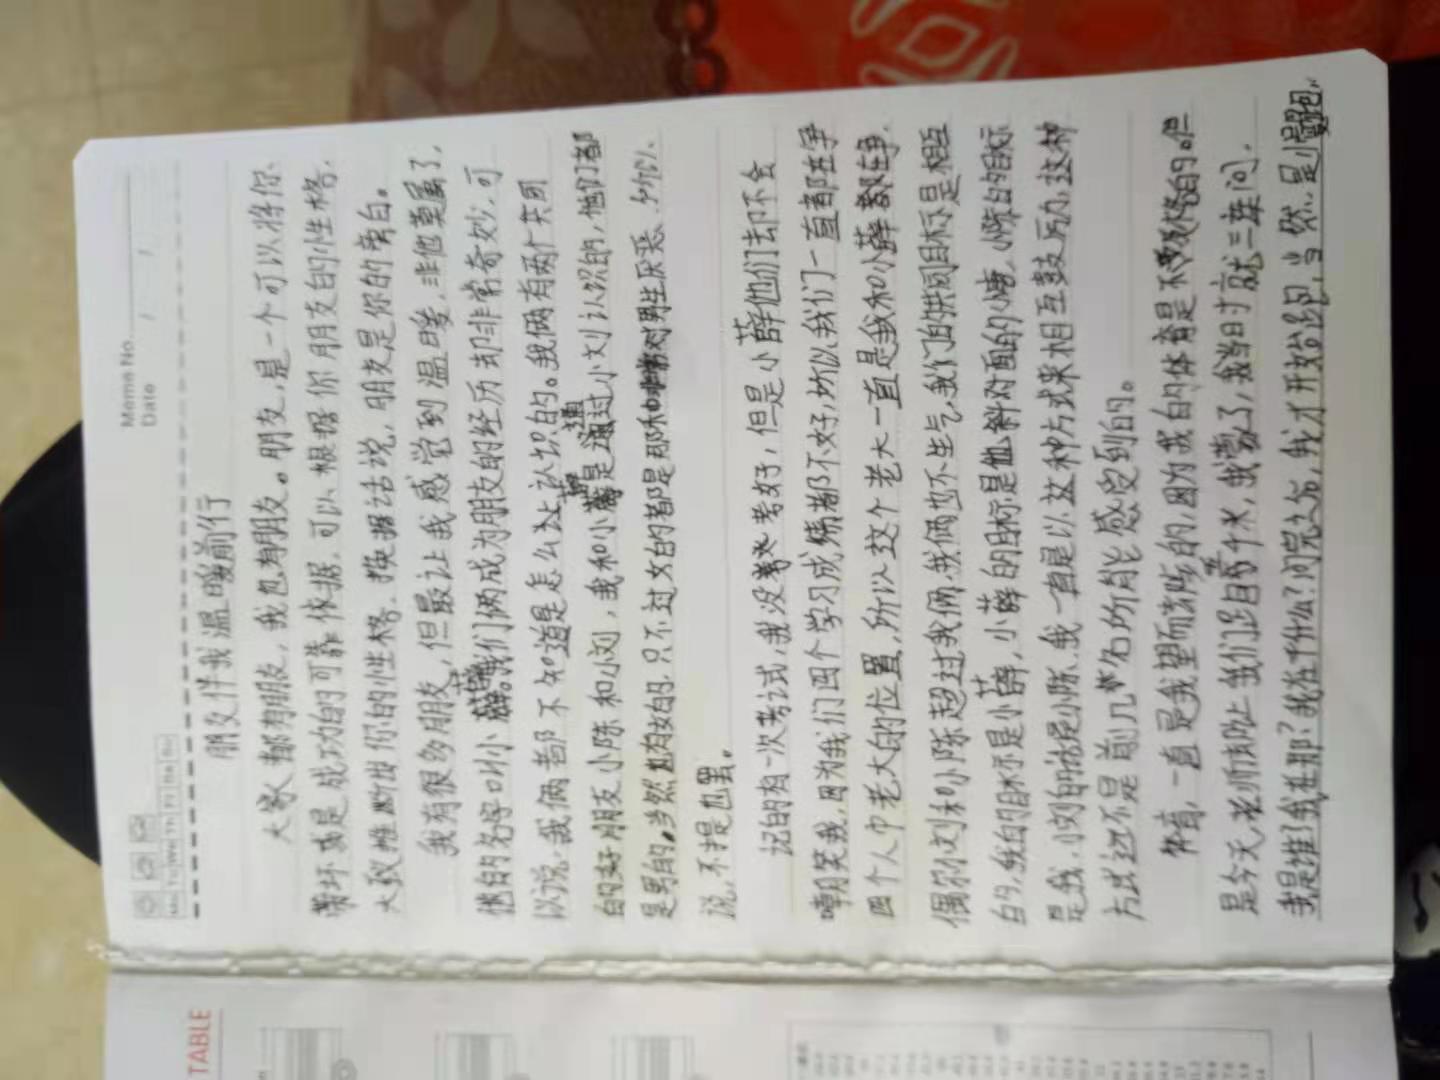 Memo No.
Date / /
Mo Tu We Th Fr Sa Su
朋友伴我温暖前行
大家都有朋友，我也有朋友。朋友，是一个可以将你
带坏或是成功的可靠依据，可以根据你朋友的性格，
大致推断出你的性格。换据话说，朋友是你的旁白。
我有很多朋友，但最让我感觉到温暖，非他莫属了，
他的名字叫小薛。我们俩成为朋友的经历却非常奇妙，可
以说，我俩都不知道是怎么认识的。我俩有两个共同
的好朋友小陈和小刘，我和小薛是通过小刘认识的，他们都
是男的。当然也有女的，只不过女的都是那种对男生厌恶，所以
说，不提也罢。
记的有一次考试，我没考好，但是小薛他们却不会
嘲笑我，因为我们四个学习成绩都不好，所以我们一直都在争
四个人中老大的位置，所以这个老大一直是我和小薛都在争，
偶尔小刘和小陈超过我俩，我俩也不生气，我们的共同目标是相互
的，我的目标是小薛，小薛的目标是他斜对面的小唐，小陈的目标
是我，小刘的话是小陈，我一直是以这种方式来相互鼓励，这种
方式远不是前几名所能感受到的。
体育，一直是我望而该陈的，因为我的体育是不及格的。但
是今天，老师去让我们跑百千米，我蒙了，我当时就三连问，
我是谁？我在那？我在干什么？问完之后，我才开始跑，当然，是小跑。
TABLE